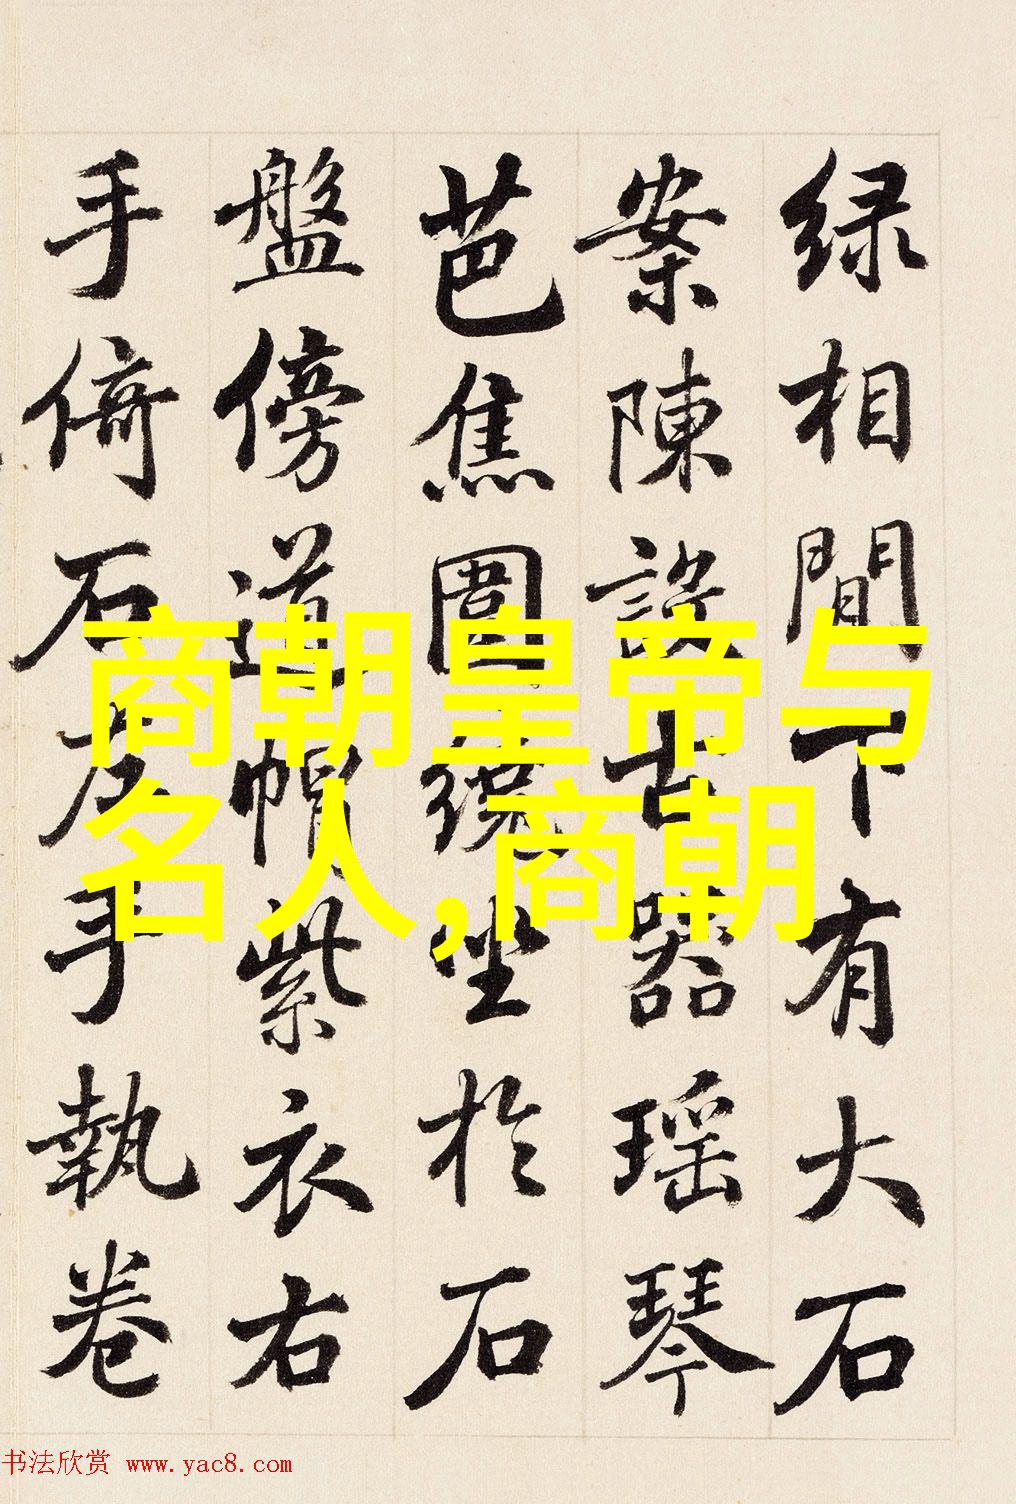 绿相間下有大石
案陳設古器瑶琴
芭焦圍繞坐於石
盤傍道帽紫衣右
手倚石左手執卷
商朝皇帝与
名人,商朝
书法欣赏 www.yac8.com